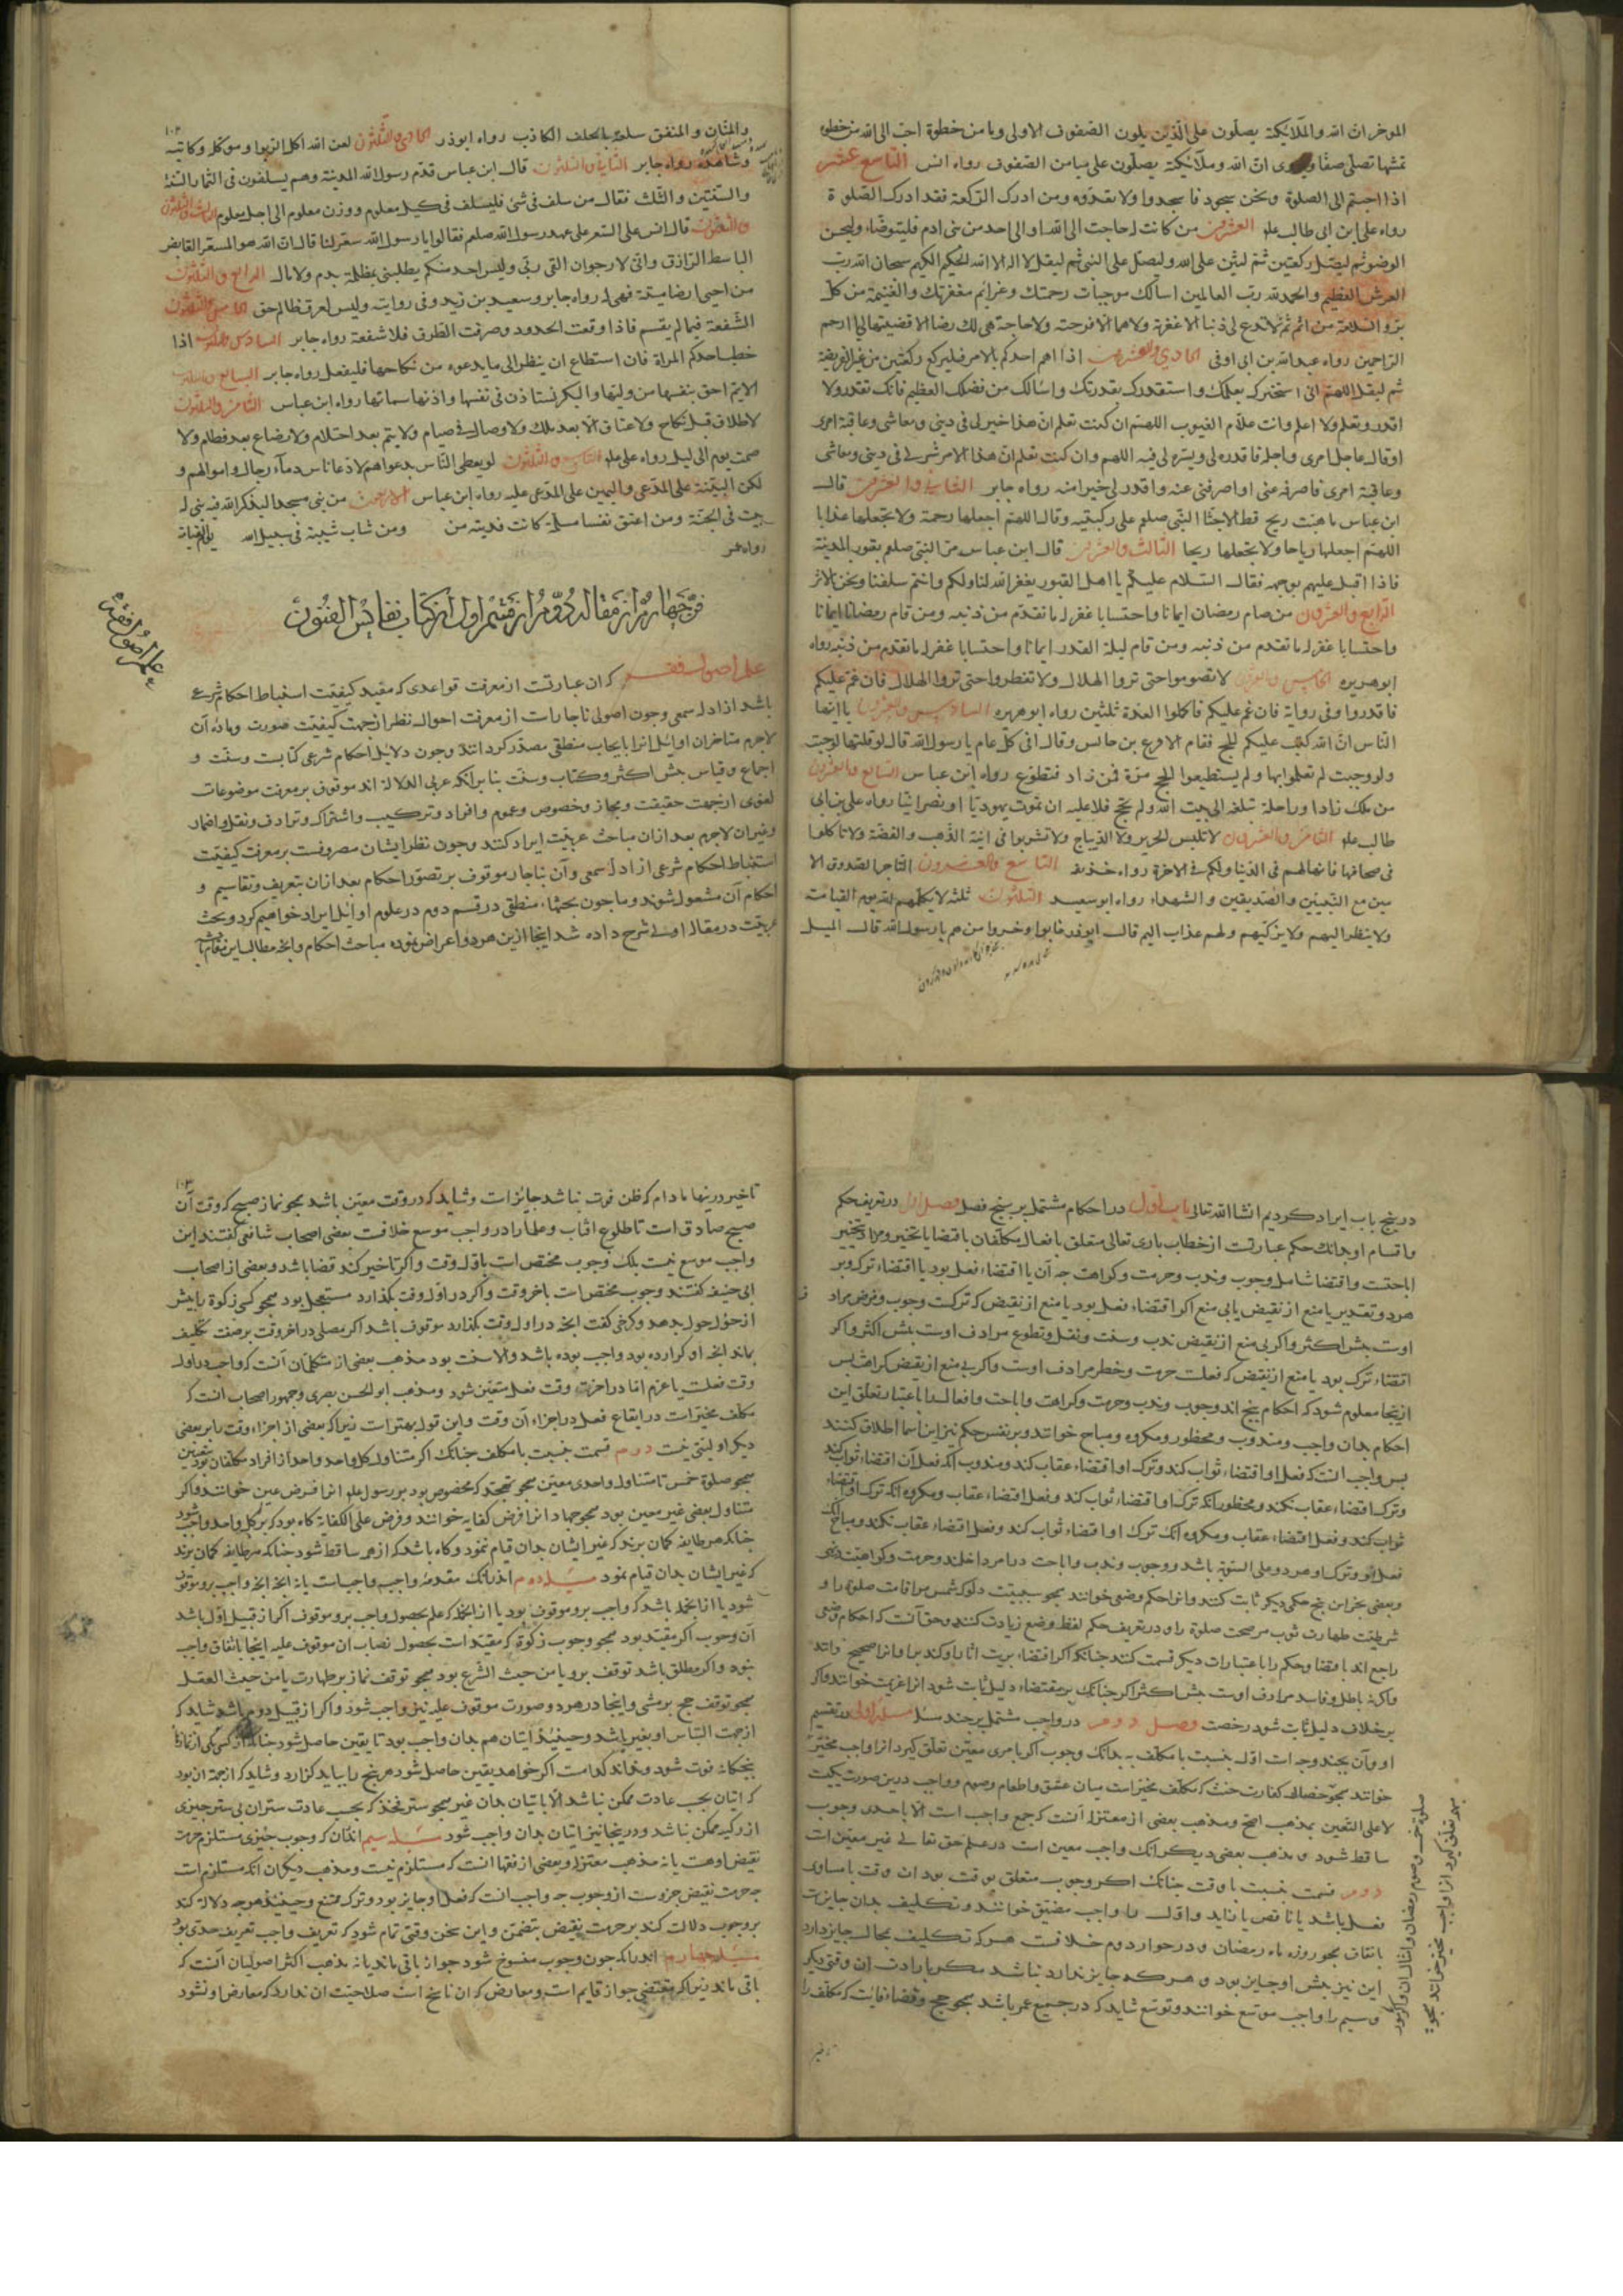 الموخر ان الله والملائكة يصلون على الذين يلون الصفوف الاولى وما من خطوة احب الى الله من خطوة
تمشها تصل صفا ان الله وملائكته يصلون على ميامن الصفوف رواه انس التاسع عشر
اذا اجئتم الى الصلوة ونحن سجود فاسجدوا ولا تعدوه ومن ادرك الركعة فقد ادرك الصلوة
رواه على ابن ابى طالب علم العشرون من كانت له حاجت الى الله او الى احد من بنى ادم فليتوضاء وليحسن
الوضو ثم ليصل ركعتين ثم ليثن على الله وليصل على النبى ثم ليقل لا اله الا الله الحكيم الكريم سبحان الله رب
العرش العظيم والحمد لله رب العالمين اسالك موجبات رحمتك وعزائم مغفرتك والغنيمة من كل
بر والسلامة من اثم ثم لا تدع لى ذنبا الا غفرته ولا هما الا فرجته ولا حاجة هى لك رضا الا قضيتها يا ارحم
الراحمين رواه عبد الله بن ابى اوفى الحادى والعشرون اذا اهم احدكم بالامر فليركع ركعتين من غير الفريضة
ثم ليقل اللهم انى استخيرك بعلمك واستقدرك بقدرتك واسالك من فضلك العظيم فانك تقدر ولا
اقدر وتعلم ولا اعلم وانت علام الغيوب اللهم ان كنت تعلم ان هذا خير لى فى دينى ومعاشى وعاقبة امرى
او قال عاجل امرى واجله فاقدره لى ويسره لى فيه اللهم وان كنت تعلم ان هذا الامر شر لى فى دينى ومعاشى
وعاقبة امرى فاصرفه عنى واصرفنى عنه واقدر لى خيرا منه رواه جابر الثانى والعشرون قال
ابن عباس ما هبت ريح قط الا جثا النبى صلعم على ركبتيه وقال اللهم اجعلها رحمة ولا تجعلها عذابا
اللهم اجعلها رياحا ولا تجعلها ريحا الثالث والعشرون قال ابن عباس مر النبى صلعم بقبور المدينة
فاذا اقبل عليهم بوجهه فقال السلام عليكم يا اهل القبور يغفر الله لنا ولكم وانتم سلفنا ونحن بالاثر
الرابع والعشرون من صام رمضان ايمانا واحتسابا غفر له ما تقدم من ذنبه ومن قام رمضان ايمانا
واحتسابا غفر له ما تقدم من ذنبه ومن قام ليلة القدر ايمانا واحتسابا غفر له ما تقدم من ذنبه رواه
ابو هريره الخامس والعشرون لا تصوموا حتى تروا الهلال ولا تفطروا حتى تروا الهلال فان غم عليكم
فاقدروا وفى رواية فان غم عليكم فاكملوا العدة ثلثين رواه ابو هريره السادس والعشرون يا ايها
الناس ان الله كتب عليكم الحج فقام الاقرع بن حابس وقال افى كل عام يا رسول الله قال لو قلتها لوجبت
ولو وجبت لم تعملوا بها ولم يستطيعوا الحج مرة فمن زاد فتطوع رواه ابن عباس السابع والعشرون
من ملك زادا وراحلة تبلغه الى بيت الله ولم يحج فلا عليه ان يموت يهوديا او نصرانيا رواه على بن ابى
طالب علم الثامن والعشرون لا تلبس الحرير ولا الديباج ولا تشربوا فى انية الذهب والفضة ولا تاكلوا
فى صحافها فانها لهم فى الدنيا ولكم فى الاخرة رواه حذيفه التاسع والعشرون التاجر الصدوق الا
مين مع النبيين والصديقين والشهداء رواه ابو سعيد الثلثون ثلثة لا يكلمهم الله يوم القيامت
ولا ينظر اليهم ولا يزكيهم ولهم عذاب اليم قال ابو ذر خابوا وخسروا من هم يا رسول الله قال المسبل
والمنان والمنفق سلعته بالحلف الكاذب رواه ابوذر الحادى والثلثون لعن الله اكل الربوا وموكله وكاتبه
وشاهده رواه جابر الثانى والثلثون قال ابن عباس قدم رسول الله المدينة وهم يسلفون فى الثمار السنة
والسنتين والثلث فقال من سلف فى شئ فليسلف فى كيل معلوم ووزن معلوم الى اجل معلوم الثالث
والثلثون قال انس غلى السعر على عهد رسول الله صلعم فقالوا يا رسول الله سعر لنا قال ان الله هو المسعر القابض
الباسط الرازق وانى لارجوان القى ربى وليس احد منكم يطلبنى بمظلمة بدم ولا مال الرابع والثلثون
من احيى ارضا ميتة فهى له رواه جابر وسعيد بن زيد وفى روايته وليس لعرق ظالم حق الخامس والثلثون
الشفعة فيما لم يقسم فاذا وقعت الحدود وصرفت الطرق فلا شفعة رواه جابر السادس والثلثون اذا
خطب احدكم المراة فان استطاع ان ينظر الى ما يدعوه من نكاحها فليفعل رواه جابر السابع والثلثون
الايم احق بنفسها من وليها والبكر تستاذن فى نفسها واذنها صماتها رواه ابن عباس الثامن والثلثون
لا طلاق قبل نكاح ولا عتاق الا بعد ملك ولا وصال فى صيام ولا يتم بعد احتلام ولا رضاع بعد فطام ولا
صمت يوم الى ليل رواه على علم التاسع والثلثون لو يعطى الناس بدعواهم لادعا ناس دماء رجال واموالهم و
لكن البينة على المدعى واليمين على المدعى عليه رواه ابن عباس الاربعون من بنى مسجدا ليذكر الله فيه بنى له
بيت فى الجنة ومن اعتق نفسا مسلمة كانت فديته من ومن شاب شيبة فى سبيل الله
رواه عمر
فن چهارم از مقاله دوم از قسم اول از كتاب نفايس الفنون
علم اصول فقه
علم اصول فقه كه ان عبارتست از معرفت قواعدى كه مفيد كيفيت استنباط احكام شرعى
باشد از ادله سمعى وچون اصولى ناچارات از معرفت احوال نظر از جهت كيفيت صورت وماده آن
لاجرم متاخران اوائل انرا بابحاث منطقى مصدر كردانند وچون دلايل احكام شرعى كتابست وسنت و
اجماع وقياس پيش اكثر وكتاب وسنت بنابر انكه عربى الدلالة اند موقوف بر معرفت موضوعات
لغوى از جهت حقيقت ومجاز وخصوص وعموم وافراد وتركيب واشتراك وترادف ونقل واضمار
وغيران لاجرم بعد ازان مباحث عربيت ايراد كنند وچون نظر ايشان مصروفست بر معرفت كيفيت
استنباط احكام شرعى از ادله سمعى وآن بناچار موقوف بر تصور احكام بعد ازان بتعريف وتقاسيم و
احكام آن مشغول شوند وما چون بحثهاء منطقى در قسم دوم در علوم اوايل ايراد خواهيم كرد وبحث
عربيت در مقاله اولى شرح داده شد اينجا ازين هر دو اعراض نموده مباحث احكام وانچه مطالب اين فن است
در پنج باب ايراد كرديم انشا الله تعالى باب اول در احكام مشتمل بر پنج فصل فصل اول در تعريف حكم
واقسام او بدانك حكم عبارتست از خطاب بارى تعالى متعلق بافعال مكلفان باقتضا يا تخيير ومراد بتخيير
اباحتت واقتضا شامل وجوب وندب وحرمت وكراهت چه آن يا اقتضاء فعل بود يا اقتضاء ترك وبر
هر دو تقدير يا منع از نقيض يا بى منع اكر اقتضاء فعل بود با منع از نقيض كه تركست وجوب وفرض مراد
اوست پيش اكثر واكر بى منع از نقيض ندب وسنت ونفل وتطوع مرادف اوست پيش اكثر واكر
اقتضاء ترك بود با منع از نقيض كه فعلست حرمت وخطر مرادف اوست واكر بى منع از نقيض كراهت پس
ازينجا معلوم شود كه احكام پنج اند وجوب وندب وحرمت وكراهت واباحت وافعال را باعتبار تعلق اين
احكام بدان واجب ومندوب ومحظور ومكروه ومباح خوانند وبر نفس حكم نيز اين اسما اطلاق كنند
پس واجب انست كه فعل او اقتضاء ثواب كند وترك او اقتضاء عقاب كند ومندوب انكه فعل آن اقتضاء ثواب كند
وترك اقتضاء عقاب نكند ومحظور انكه ترك او اقتضاء ثواب كند وفعل اقتضاء عقاب ومكروه انكه ترك او اقتضاء
ثواب كند وفعل اقتضاء عقاب ومكروه انك ترك او اقتضاء ثواب كند وفعل اقتضاء عقاب نكند ومباح انك
فعل او وترك او هر دو على السويه باشد ووجوب وندب واباحت
وبعضى بخز اين پنج حكمى ديكر ثابت كنند وانرا حكم وضعى خوانند همچو سببيت دلوك شمس مر اقامت صلوة را و
شرطيت طهارت ثوب مر صحت صلوة را ودر تعريف حكم لفظ وضع زيادت كنند وحق آنست كه احكام وضعى
راجع اند باقتضا وحكم را باعتبارات ديكر قسمت كنند
واكرنه باطل وفاسد مرادف اوست پيش اكثر اكر چنانك بر مقتضاء دليل ثابت شود انرا عزيمت خوانند واكر
بر خلاف دليل ثابت شود رخصت فصل دوم در واجب مشتمل بر چند مسئله مسئله اولى در تقسيم
او وآن بچند وجه است اول بنسبت با مكلف به بدانك وجوب اكر بامرى معين تعلق كيرد انرا واجب مخير
خوانند همچو خصال كفارت حنث كه مكلف مخيراست ميان عتق واطعام وصوم وواجب درين صورت يكيست
لا على التعيين بمذهب اصح ومذهب بعضى از معتزله آنست كه جمع واجب است الا باحدى وجوب
ساقط شود ومذهب بعضى ديكر انك واجب معين است در علم حق تعالى غير معين است
دوم قسمت بنسبت با وقت چنانك اكر وجوب متعلق بوقت بود ان وقت يا مساوى
فعل باشد يا ناقص يا زايد واول را واجب مضيق خوانند وتكليف بدان جايزست
باتفاق همچو روزه ماه رمضان ودر جواز دوم خلافست هر كه تكليف بمحال جايز دارد
اين نيز پيش او جايز بود وهر كه جايز ندارد نباشد مكر بارادت ان وقتى ديكر
وسيم را واجب موسع خوانند وتوسع شايد كه در جميع عمر باشد همچو حج وقضاء فائت كه مكلف را
تاخير درينها مادام كه ظن فوت نباشد جايزاست وشايد كه در وقت معين باشد همچو نماز صبح كه وقت آن
صبح صادق است تا طلوع افتاب وعلما را در واجب موسع خلافست بعضى اصحاب شافعى كفتند اين
واجب موسع نيست بلك وجوب مختص است باول وقت واكر تاخير كند قضا باشد وبعضى از اصحاب
ابى حنيفه كفتند وجوب مختص است باخر وقت واكر در اول وقت بكذارد مستعجل بود همچو كسى زكوة را پيش
از حول حول بدهد وكرخى كفت انچه در اول وقت بكذارد موقوف باشد اكر مصلى در اخر وقت بر صفت تكليف
بماند انچه او كزارده بود واجب بوده باشد والا سنت بود مذهب بعضى از متكلمان آنست كه واجب در اول
وقت فعلست يا عزم اما در اخر وقت فعل متعين شود ومذهب ابو الحسن بصرى وجمهور اصحاب انست كه
مكلف مخيراست در ايقاع فعل در اجزاء آن وقت واين قول بهتراست زيراكه بعضى از اجزاء وقت را بر بعضى
ديكر اوليتى نيست دوم قسمت بنسبت با مكلف چنانك اكر متناول كل واحد واحد از افراد مكلفان بود
همچو صلوة خمس يا متناول واحدى معين همچو تهجد كه مخصوص بود برسول علم انرا فرض عين خوانند واكر
متناول بعضى غير معين بود همچو جهاد انرا فرض كفايه خوانند وفرض على الكفاية كاه بود كه بر كل واحد واجب
چنانكه هر طايفه كمان برند كه غير ايشان بدان قيام نمود وكاه باشد كه از همه ساقط شود چنانكه هر طايفه كمان برند
كه غير ايشان بدان قيام نمود مسئله دوم اندر انك مقدمه واجب واجب است يا نه انچه واجب برو موقوف
شود يا از انجمله باشد كه واجب برو موقوف بود يا از انجمله كه علم بحصول واجب برو موقوف اكر از قبيل اول باشد
آن وجوب اكر مقيد بود همچو وجوب زكوة كه مقيداست بحصول نصاب ان موقوف عليه اينجا باتفاق واجب
نبود واكر مطلق باشد توقف برو يا من حيث الشرع بود همچو توقف نماز بر طهارت يا من حيث العقل
همچو توقف حج بر مشى واينجا در هر دو صورت موقوف عليه نيز واجب شود واكر از قبيل دوم باشد شايد كه
از جهت التباس او بغير باشد وحينئذ اتيان هم بدان واجب بود تا يقين حاصل شود چنانك اكر كسى يكى از نماز
پنجكانه فوت شود ونداند كدامست اكر خواهد يقين حاصل شود هر پنج را ببايد كزارد وشايد كه از جهة ان بود
كه اتيان بحسب عادت ممكن نباشد الا باتيان بدان غير همچو ستر فخذ كه بحسب عادت ستر ان بى ستر چيزى
از ركبه ممكن نباشد ودرينجا نيز اتيان بدان واجب شود مسئله سيم اندران كه وجوب چيزى مستلزم حرمت
نقيض اوهست يا نه مذهب معتزله وبعضى از فقها انست كه مستلزم نيست ومذهب ديكران انكه مستلزم است
چه حرمت نقيض جزوست از وجوب چه واجب انست كه فعل او جايز بود وترك ممتنع وحينئذ هرچه دلالة كند
بر وجوب دلالت كند بر حرمت نقيض بتضمن واين سخن وقتى تمام شود كه تعريف واجب تعريف حدى بود
مسئله چهارم اندرانكه چون وجوب منسوخ شود جواز باقى ماند يا نه مذهب اكثر اصوليان آنست كه
باقى ماند زيراكه مقتضى جواز قايم است ومعارض كه ان ناسخ است صلاحيت ان ندارد كه معارض او شود